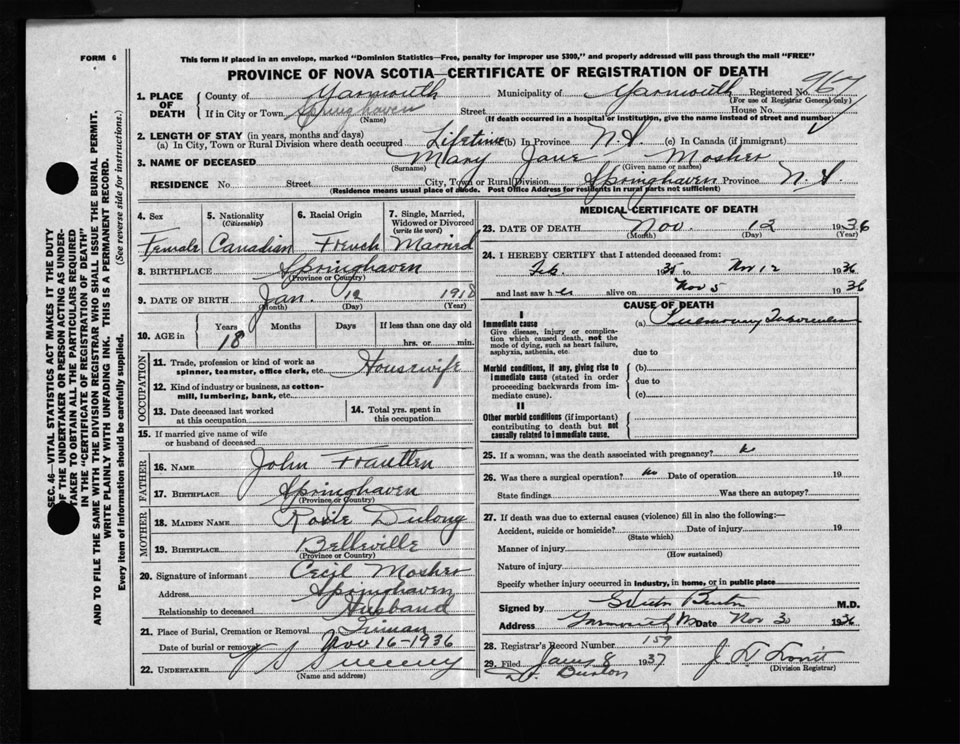 FORM 6
This form if placed in an envelope, marked "Dominion Statistics—Free, penalty for improper use $300," and properly addressed will pass through the mail "FREE"
PROVINCE OF NOVA SCOTIA—CERTIFICATE OF REGISTRATION OF DEATH
1. PLACE OF DEATH
County of Yarmouth Municipality of Yarmouth Registered No. 967
(For use of Registrar General only)
If in City or Town Springhaven Street House No.
(Name) (If death occurred in a hospital or institution, give the name instead of street and number)
2. LENGTH OF STAY (in years, months and days)
(a) In City, Town or Rural Division where death occurred Lifetime (b) In Province N.S. (c) In Canada (if immigrant)
3. NAME OF DECEASED Mary Jane Mosher
(Surname) (Given name or names)
RESIDENCE No. Street City, Town or Rural Division Springhaven Province N.S.
(Residence means usual place of abode. Post Office Address for residents in rural parts not sufficient)
4. Sex 5. Nationality (Citizenship) 6. Racial Origin 7. Single, Married, Widowed or Divorced (write the word)
Female Canadian French Married
8. BIRTHPLACE Springhaven
(Province or Country)
9. DATE OF BIRTH Jan. 12 1918
(Month) (Day) (Year)
10. AGE in Years Months Days If less than one day old
18 hrs. or min.
OCCUPATION
11. Trade, profession or kind of work as spinner, teamster, office clerk, etc. Housewife
12. Kind of industry or business, as cotton-mill, lumbering, bank, etc.
13. Date deceased last worked at this occupation 14. Total yrs. spent in this occupation
15. If married give name of wife or husband of deceased
FATHER
16. NAME John
17. BIRTHPLACE Springhaven
(Province or Country)
MOTHER
18. MAIDEN NAME Rosie Dulong
19. BIRTHPLACE Belleville
(Province or Country)
20. Signature of informant Cecil Mosher
Address Springhaven
Relationship to deceased Husband
21. Place of Burial, Cremation or Removal
Date of burial or removal Nov 16-1936
22. UNDERTAKER Sweeny
(Name and address)
MEDICAL CERTIFICATE OF DEATH
23. DATE OF DEATH Nov. 12 1936
(Month) (Day) (Year)
24. I HEREBY CERTIFY that I attended deceased from:
Feb. 1935 to Nov 12 1936
and last saw h er alive on Nov 5 1936
CAUSE OF DEATH
I
Immediate cause (a) Pulmonary Tuberculosis
Give disease, injury or complication which caused death, not the mode of dying, such as heart failure, asphyxia, asthenia, etc.
due to
Morbid conditions, if any, giving rise to immediate cause (stated in order proceeding backwards from immediate cause).
(b)
due to
(c)
II
Other morbid conditions (if important) contributing to death but not causally related to immediate cause.
25. If a woman, was the death associated with pregnancy? No
26. Was there a surgical operation? No Date of operation 19
State findings Was there an autopsy?
27. If death was due to external causes (violence) fill in also the following:—
Accident, suicide or homicide? Date of injury 19
(State which)
Manner of injury
(How sustained)
Nature of injury
Specify whether injury occurred in industry, in home, or in public place
Signed by Burton M.D.
Address Date Nov 30 1936
28. Registrar's Record Number 159
29. Filed Jan 8 1937
(Division Registrar)
Dr. Burton
SEC. 46—VITAL STATISTICS ACT MAKES IT THE DUTY
OF THE UNDERTAKER OR PERSON ACTING AS UNDER-
TAKER TO OBTAIN ALL THE PARTICULARS REQUIRED
IN THE "CERTIFICATE OF REGISTRATION OF DEATH"
AND TO FILE THE SAME WITH THE DIVISION REGISTRAR WHO SHALL ISSUE THE BURIAL PERMIT.
WRITE PLAINLY WITH UNFADING INK. THIS IS A PERMANENT RECORD.
Every item of information should be carefully supplied. (See reverse side for instructions.)